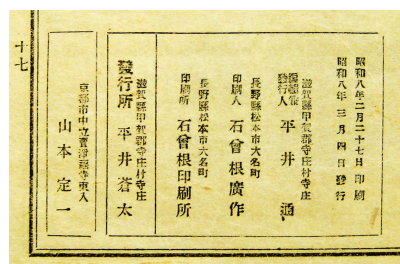 昭和八年二月二十七日 印刷
昭和八年三月四日 發行
滋賀縣甲賀郡寺庄村寺庄
編輯兼
發行人 平井通
長野縣松本市六名町
印刷人 石曾根廣作
長野縣松本市六名町
印刷所 石曾根印刷所
滋賀縣甲賀郡寺庄村寺庄
發行所 平井蒼太
京都市中立賣淨福寺東入
山本定一
十七